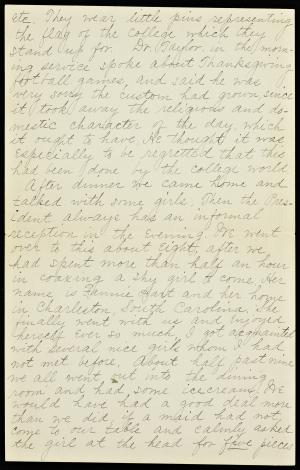 etc. They wear little pins representing
the flag of the college which they
stand up for. Dr. Taylor, in the morn-
ing service spoke about Thanksgiving
football games, and said he was
very sorry the custom had grown since
it took away the religious and do-
mestic character of the day, which
it ought to have. He thought it was
especially to be regretted that this
had been done by the college world.
After dinner we came home and
talked with some girls. Then the Pres-
ident always has an informal
reception in the evening. We went
over to this about eight, after we
had spent more than half an hour
in coaxing a shy girl to come. Her
name is Fannie Hart and her home
in Charleston, South Carolina. She
finally went with us and enjoyed
herself ever so much. I got acquainted
with several nice girls whom I had
not met before. About half past nine
we all went out into the dining
room and had some icecream. We
would have had a good deal more
than we did, if a maid had not
come to our table and calmly asked
the girl at the head for five pieces